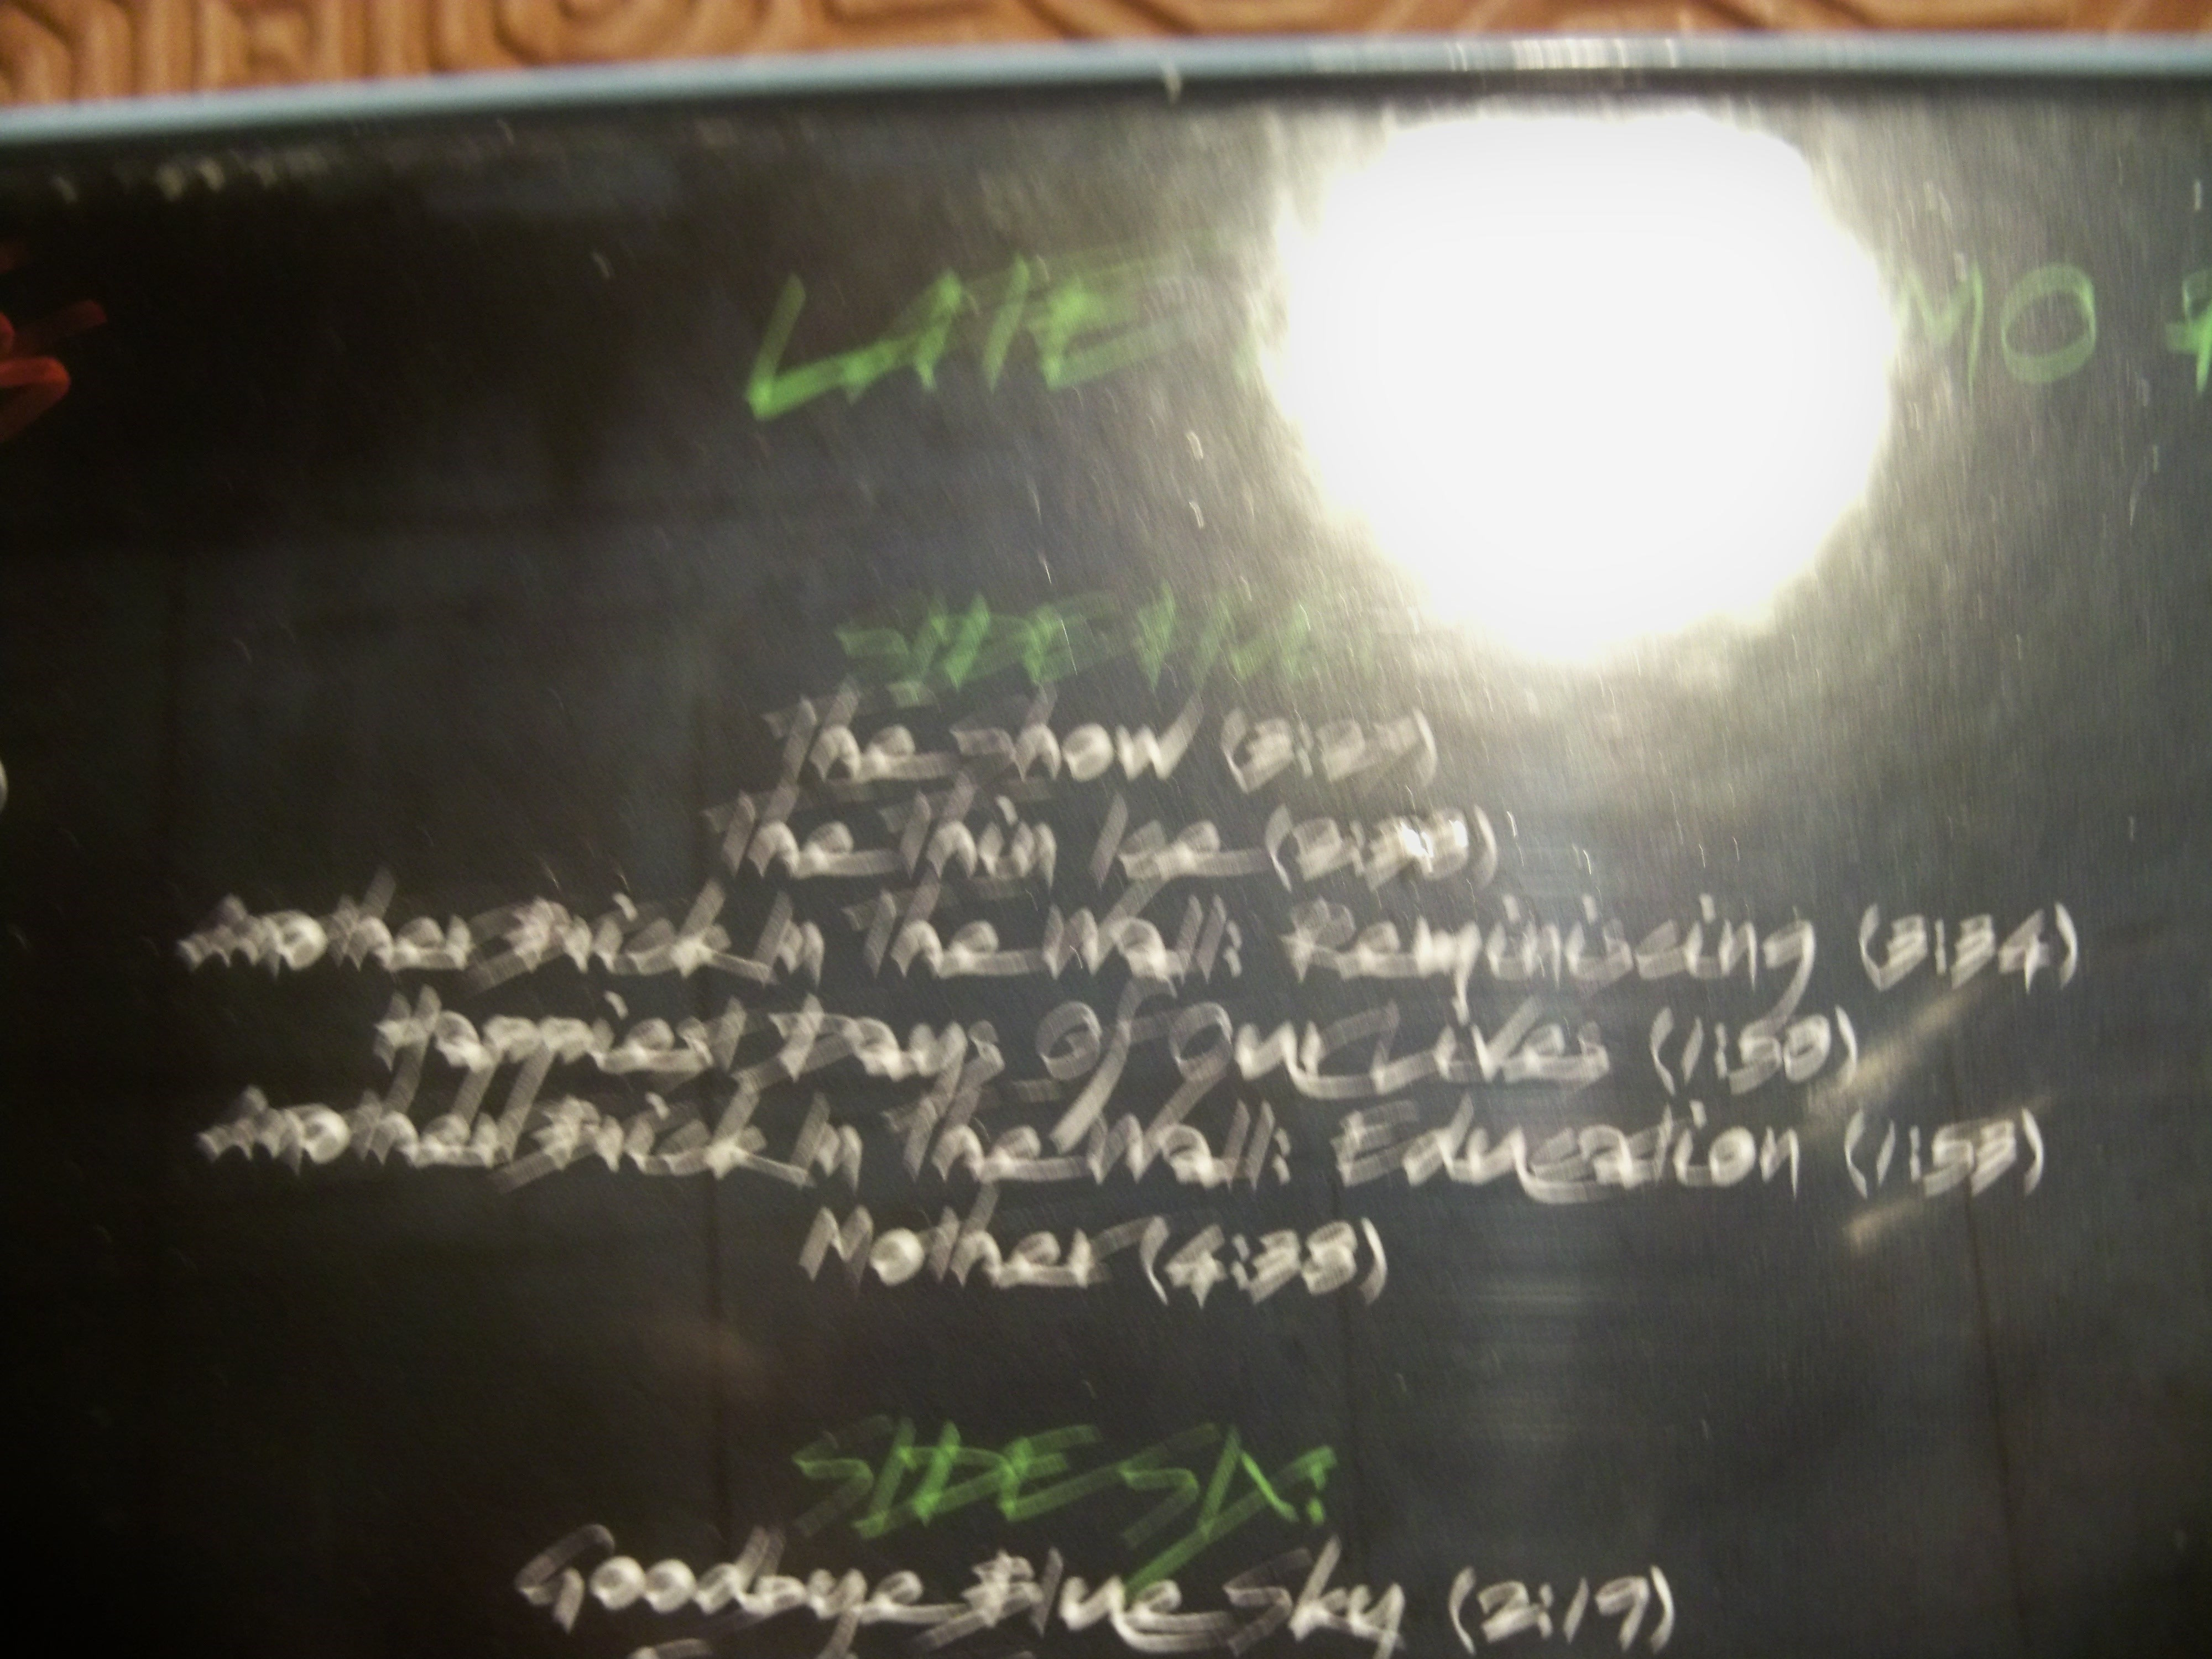 LATE MO
SIDE FIVE:
The Show
The Thin Ice
Another Brick In The Wall: Reminiscing (3:34)
Happiest Days Of Our Lives (1:50)
Another Brick In The Wall: Education (1:53)
Mother (4:35)
SIDE SIX:
Goodbye Blue Sky (2:19)